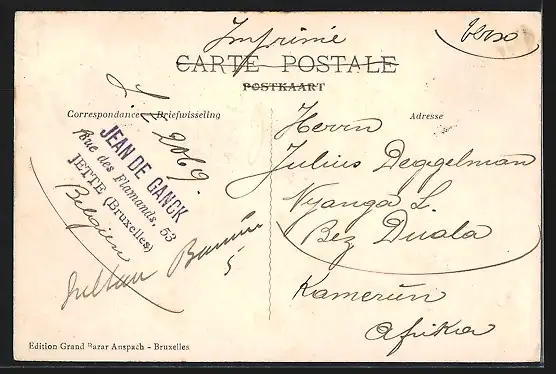 Imprimé
verso
CARTE POSTALE
POSTKAART
Correspondance - Briefwisseling
Adresse
2069.
JEAN DE GANCK
Rue des Flamands, 53
JETTE (Bruxelles)
Belgien
5
Herrn
Julius Deggelman
Nyanga L.
Bez Duala
Kamerun
Afrika
Edition Grand Bazar Anspach - Bruxelles